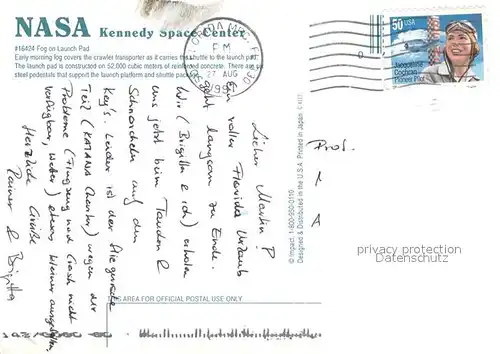 NASA Kennedy Space Center
#16424 Fog on Launch Pad
Early morning fog covers the crawler transporter as it carries the shuttle to the launch pad.
The launch pad is constructed on 52,000 cubic meters of reinforced concrete. There are six
steel pedestals that support the launch platform and shuttle
PM
27 AUG
50 USA
Jacqueline
Cochran
Pioneer Pilot
Lieber Martin!
Ein voller Florida Urlaub
geht langsam zu Ende.
Wir (Brigitta & ich) erholen
uns jetzt beim Tauchen &
Schnorcheln auf den
Key's. Leider ist der
Teil (KATANA Charter) wegen der
Probleme (Flugzeug nach Crash nicht
verfügbar, Wetter) etwas kleiner ausgefallen.
Herzliche Grüße
Rainer & Brigitta
Prof.
© Impact, 1-800-950-0119
Designed & Distributed in the U.S.A. Printed in Japan
privacy protection
Datenschutz
THIS AREA FOR OFFICIAL POSTAL USE ONLY